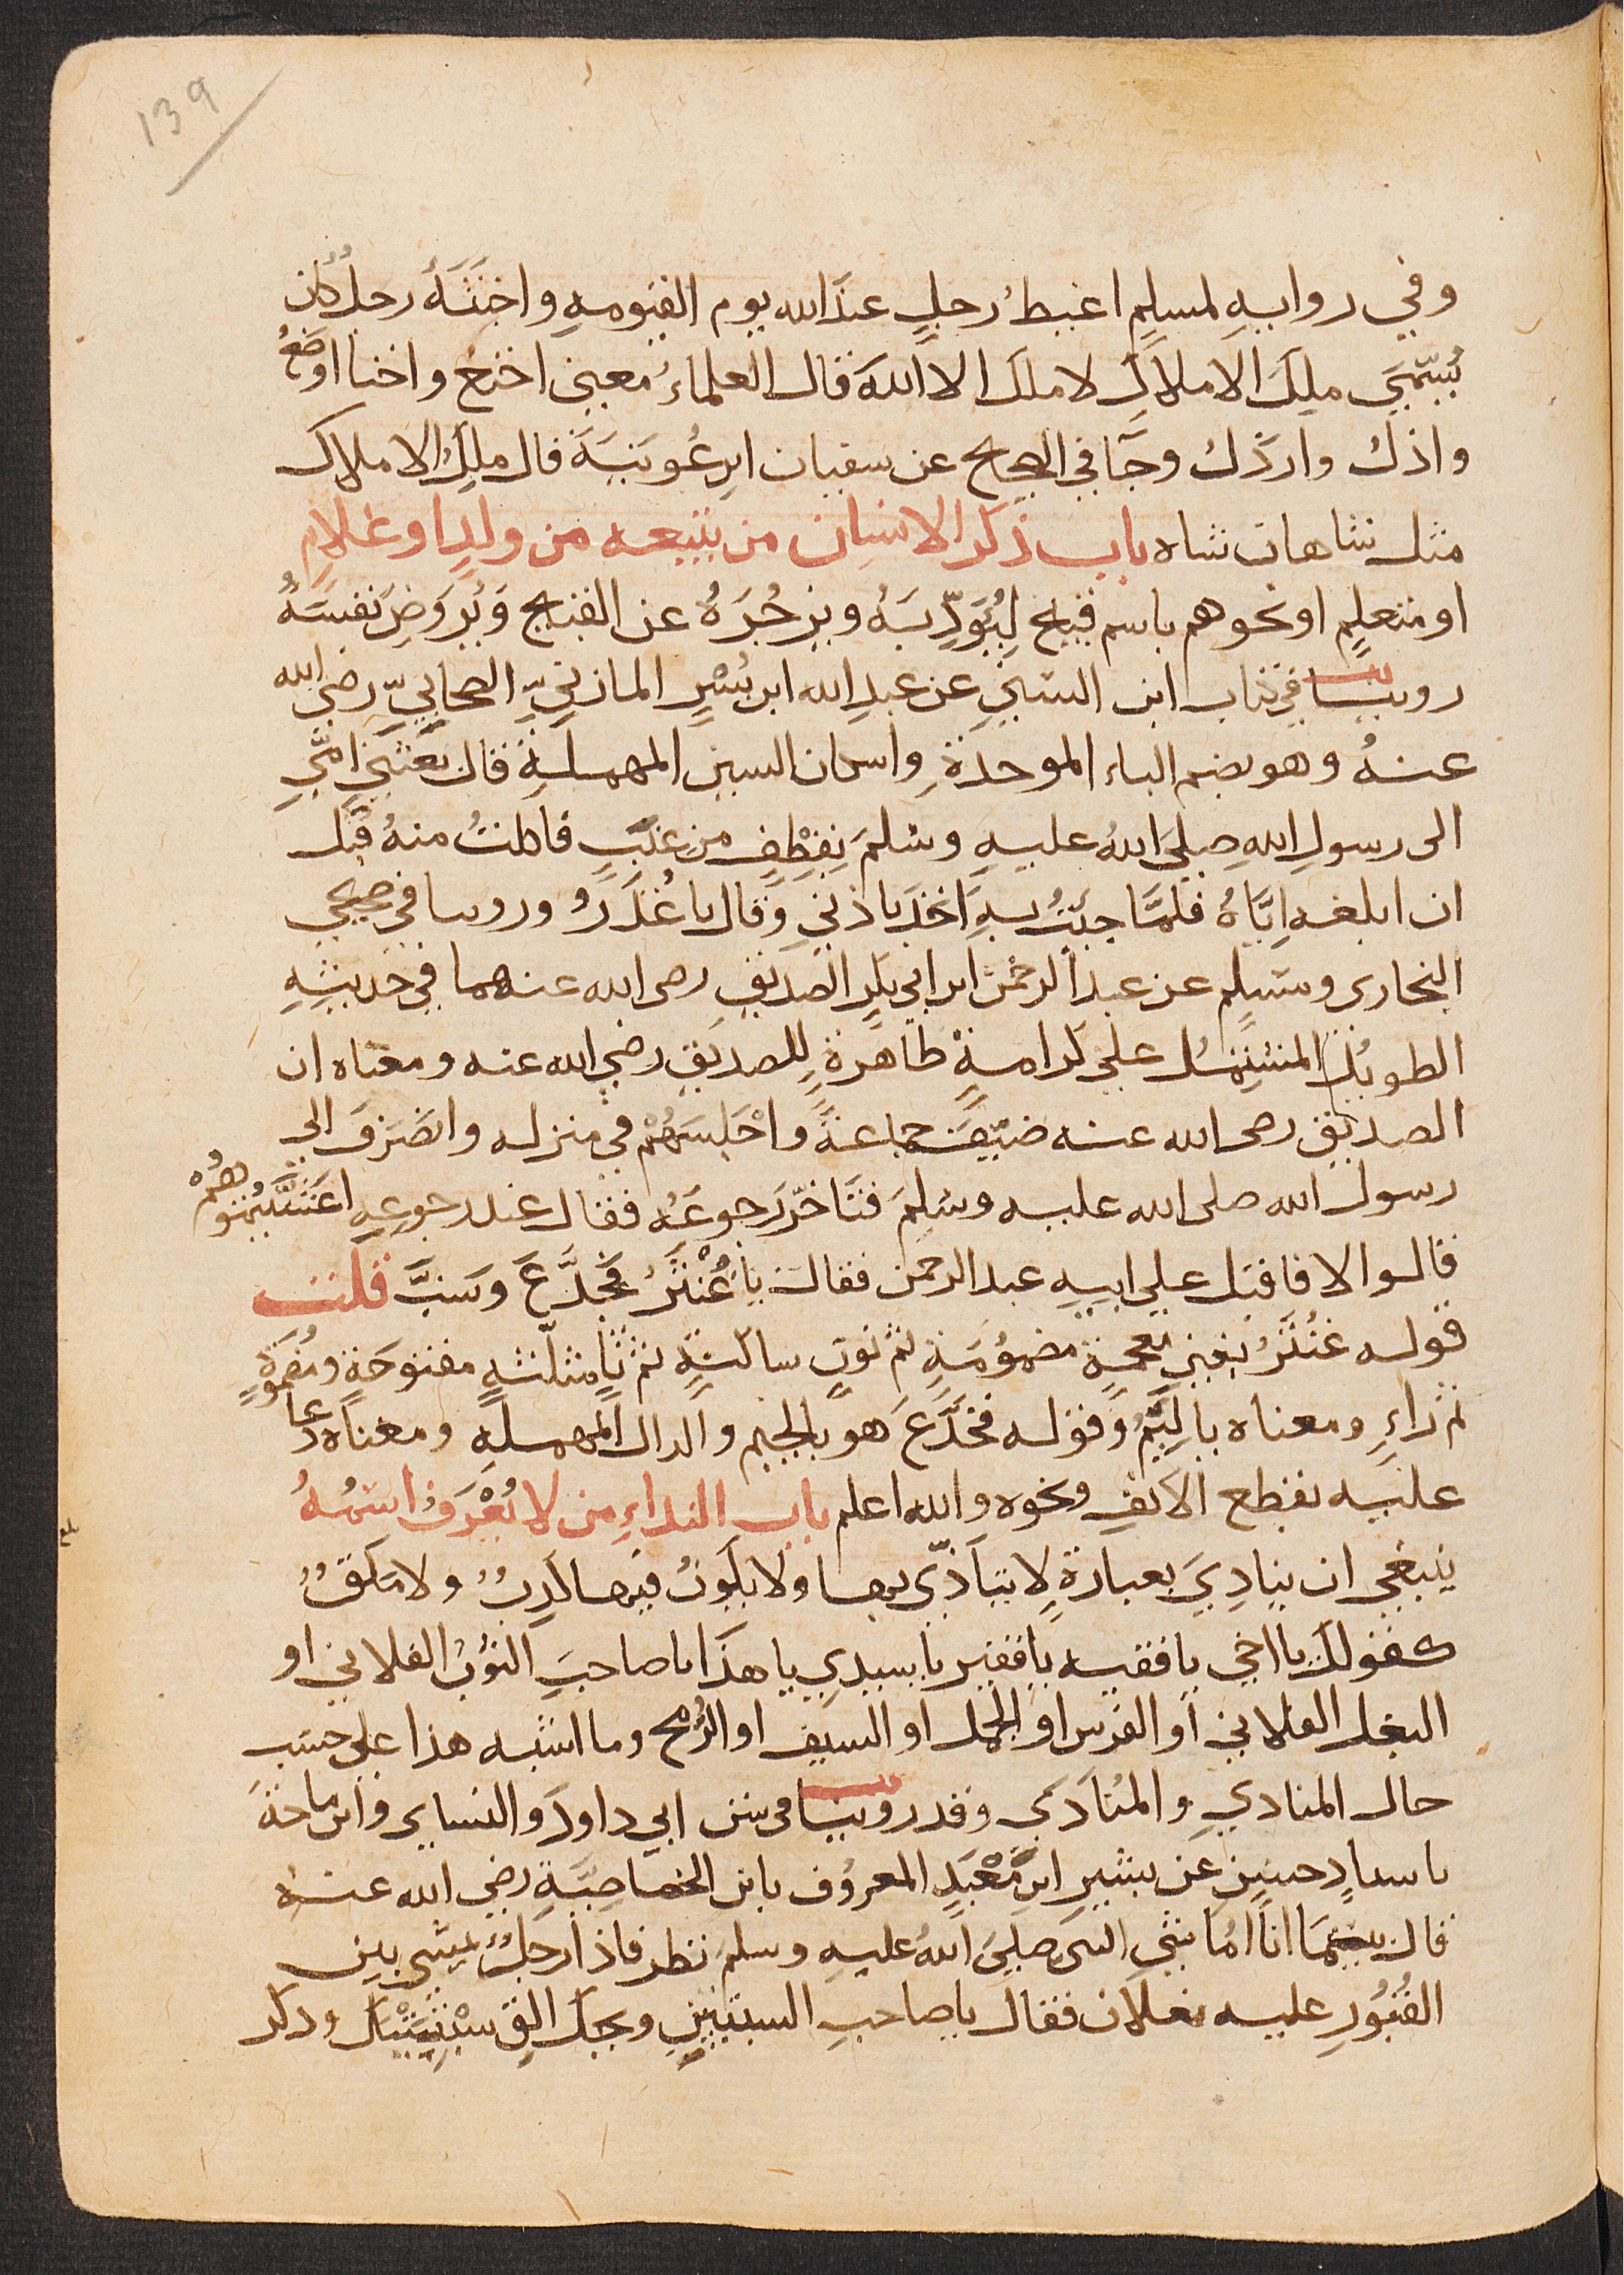 139
وفي روايه لمسلم اغيظ رجل عند الله يوم القيومه واخبثه رجل كان
يسمى ملك الاملاك لا ملك الا الله قال العلماء معنى اخنع واخنا اوضع
واذل وارذل وجا في الصحيح عن سفيان ابن عوينة قال ملك الاملاك
مثل شاهان شاه باب ذكر الانسان من يتبعه من ولد او غلام
او متعلم او نحوهم باسم قبيح ليؤدبه ويزجره عن القبيح ويروض نفسه
روينا في كتاب ابن السني عن عبد الله ابن بسر المازني الصحابي رضي الله
عنه وهو بضم الباء الموحدة واسكان السين المهملة قال بعثني امي
الى رسول الله صلى الله عليه وسلم بقطف من عنب فاكلت منه قبل
ان ابلغه اياه فلما جئت به اخذ باذني وقال يا غدر وروينا في صحيحي
البخاري ومسلم عن عبد الرحمن ابن ابي بكر الصديق رضى الله عنهما في حديثه
الطويل المشتمل على كرامة ظاهرة للصديق رضي الله عنه ومعناه ان
الصديق رضى الله عنه ضيف جماعة واجلسهم في منزله وانصرف الى
رسول الله صلى الله عليه وسلم فتاخر رجوعه فقال عند رجوعه اعشيتموهم
قالوا لا فاقبل على ابيه عبد الرحمن فقال يا غنثر فجدع وسب قلت
قوله غنثر بغين معجمة مضمومة ثم نون ساكنة ثم ثا مثلثه مفتوحة ومضمومة
ثم راء ومعناه يا لئيم وقوله فجدع هو بالجيم والدال المهمله ومعناه دعا
عليه بقطع الانف ونحوه والله اعلم باب النداء من لا يعرف اسمه
ينبغي ان ينادي بعبارة لا يتاذى بها ولا يكون فيها كذب ولا ملق
كقولك يا اخي يا فقيه يا فقير يا سيدي يا هذا يا صاحب الثوب الفلاني او
البغل الفلاني او الفرس او الجمل او السيف او الرمح وما اشبه هذا على حسب
حال المنادي والمنادى وقد روينا في سنن ابي داود والنساى وابن ماجة
باسناد حسن عن بشير ابن معبد المعروف بابن الخصاصية رضي الله عنه
قال بينما انا اماشي النبى صلى الله عليه وسلم نظر فاذا رجل يمشي بين
القبور عليه نعلان فقال يا صاحب السبتيين ويحك الق سبتيتيك وذكر
بلغ